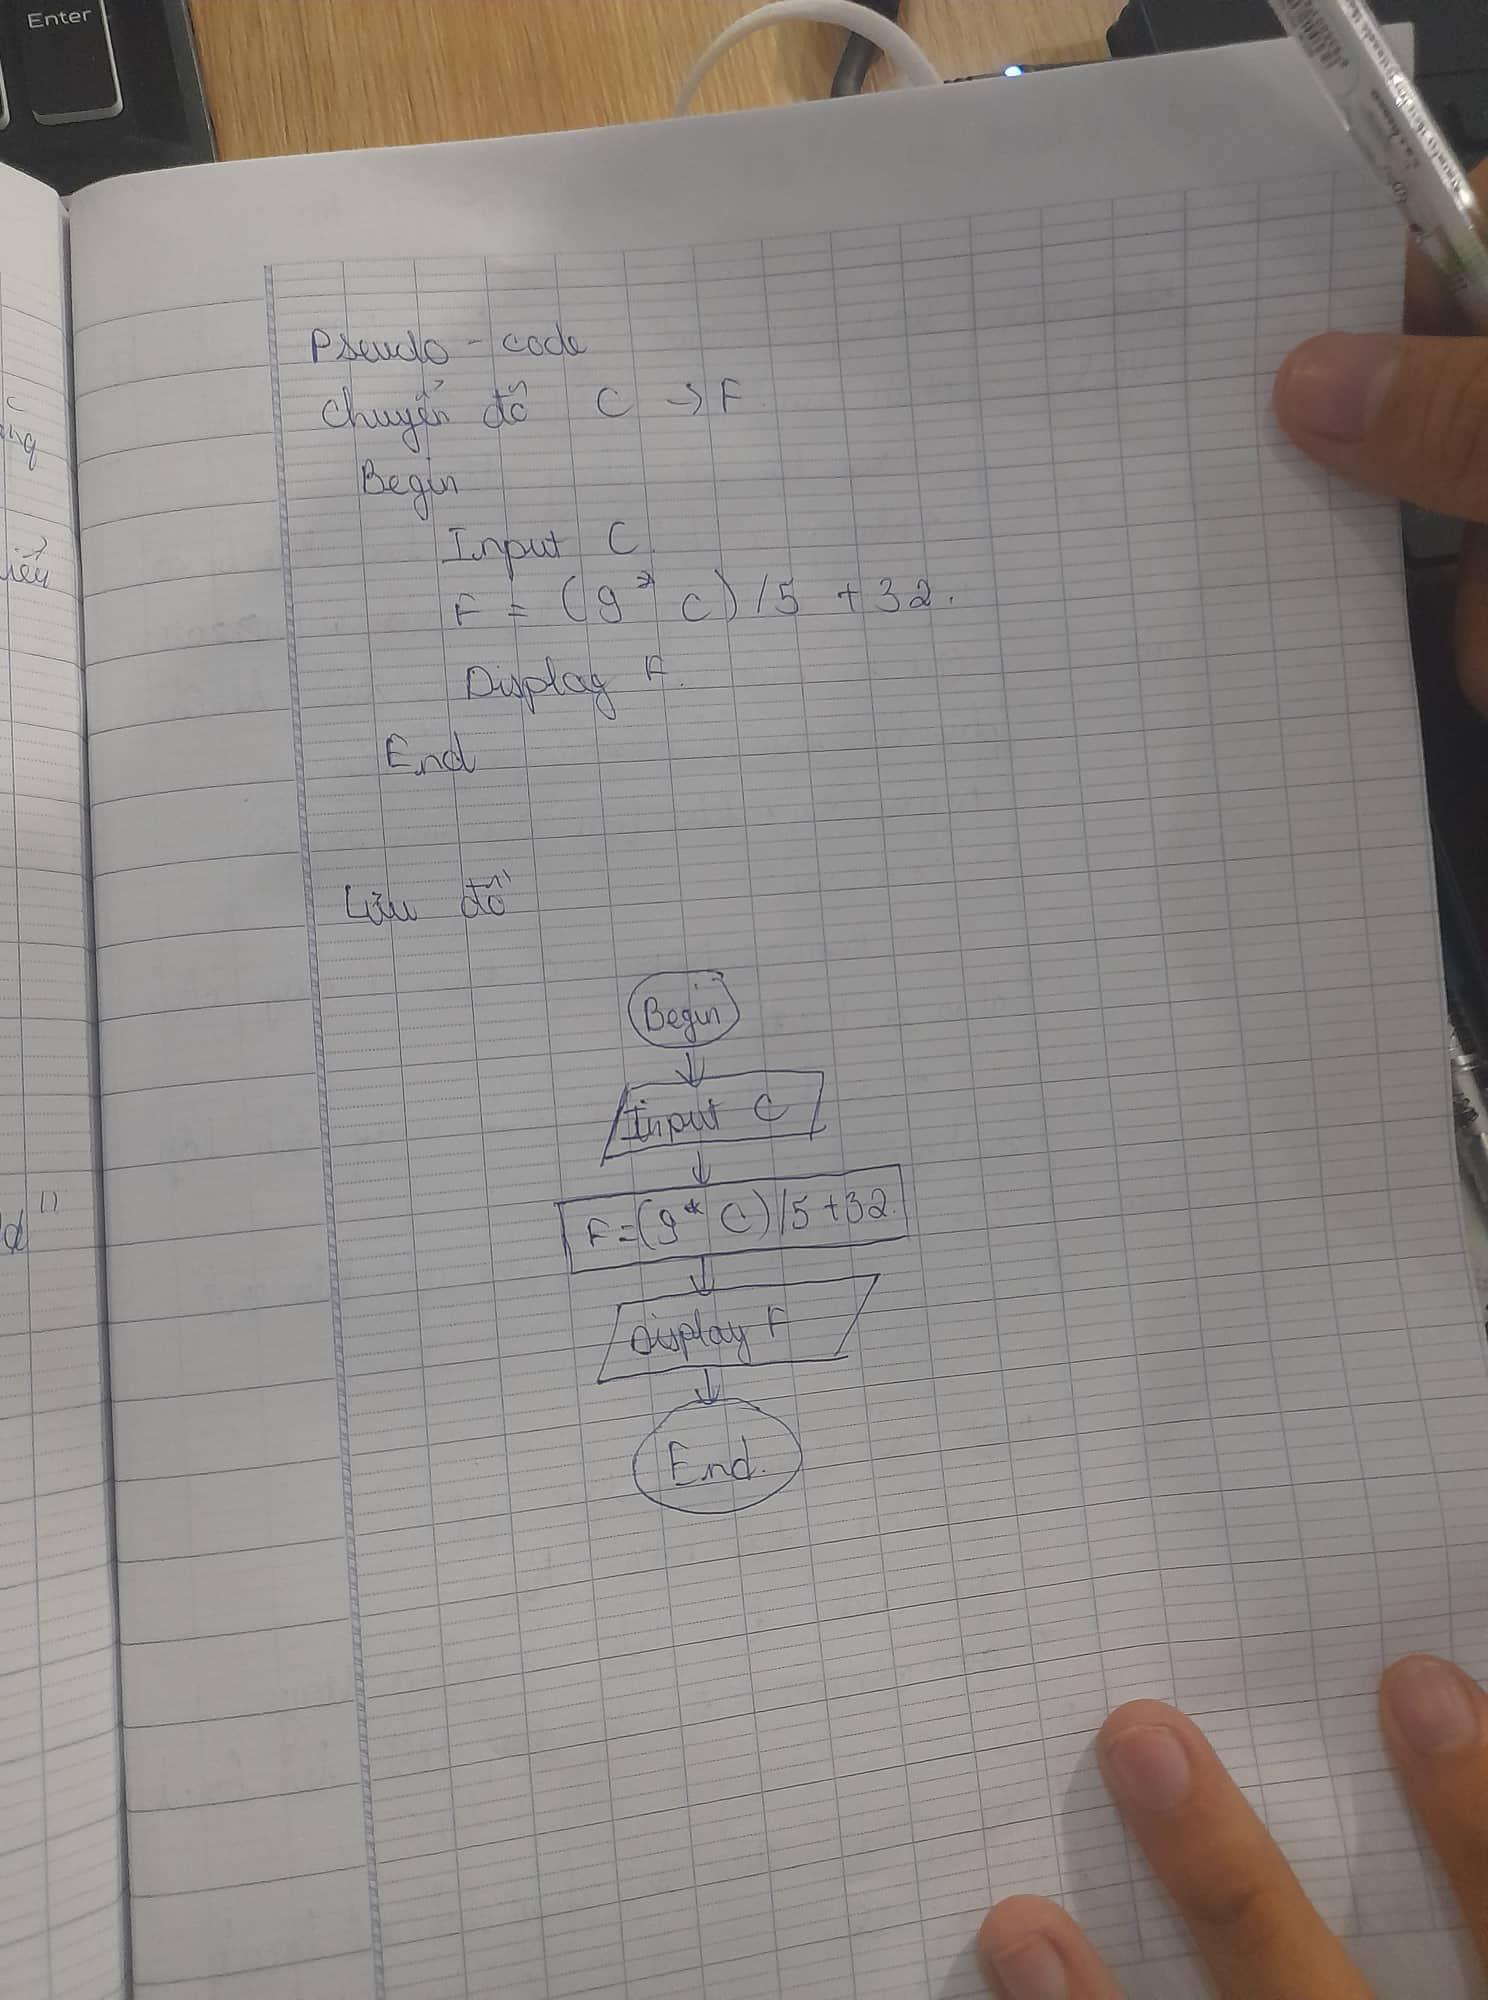 Enter
Pseudo - code
Chuyển đổ C -> F
Begin
Input C
F = (9 * C) / 5 + 32.
Display F.
End
Lưu đồ
Begin
Input C
F = (9 * C) / 5 + 32
Display F
End.